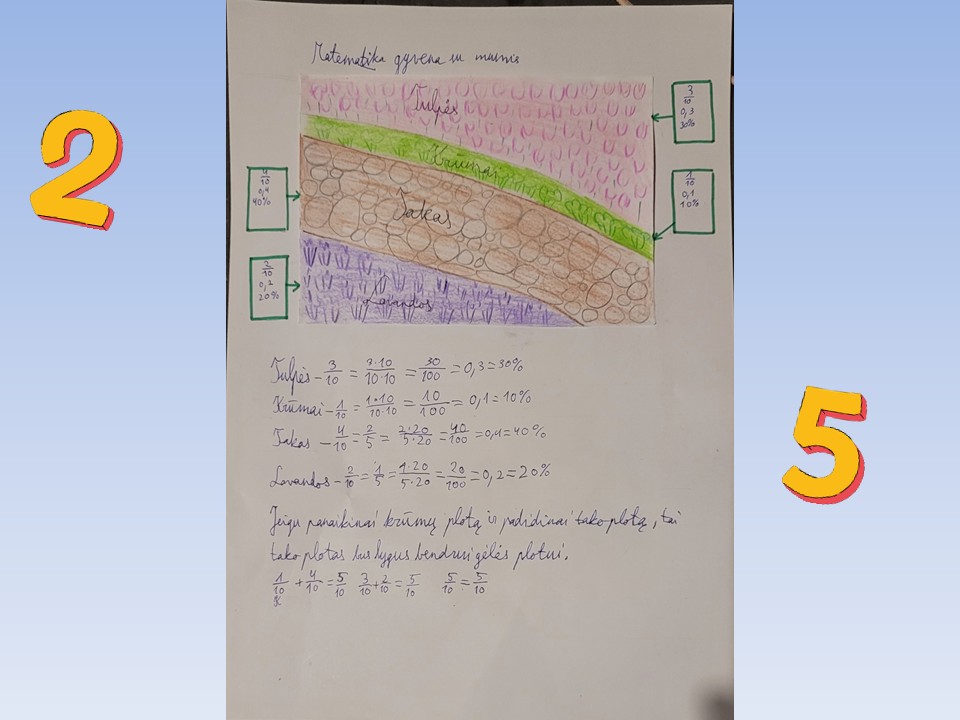 2
5
Matematika gyvena su mumis
Tulpės
Krūmai
Takas
Lavandos
3/10
0,3
30%
4/10
0,4
40%
1/10
0,1
10%
2/10
0,2
20%
Tulpės – 3/10 = 3·10/10·10 = 30/100 = 0,3 = 30%
Krūmai – 1/10 = 1·10/10·10 = 10/100 = 0,1 = 10%
Takas – 4/10 = 2/5 = 2·20/5·20 = 40/100 = 0,4 = 40%
Lavandos – 2/10 = 1/5 = 1·20/5·20 = 20/100 = 0,2 = 20%
Jeigu panaikinai krūmų plotą ir padidinai tako plotą, tai
tako plotas bus lygus bendrui gėlės plotui.
1/10 + 4/10 = 5/10 3/10 + 2/10 = 5/10 5/10 = 5/10
K